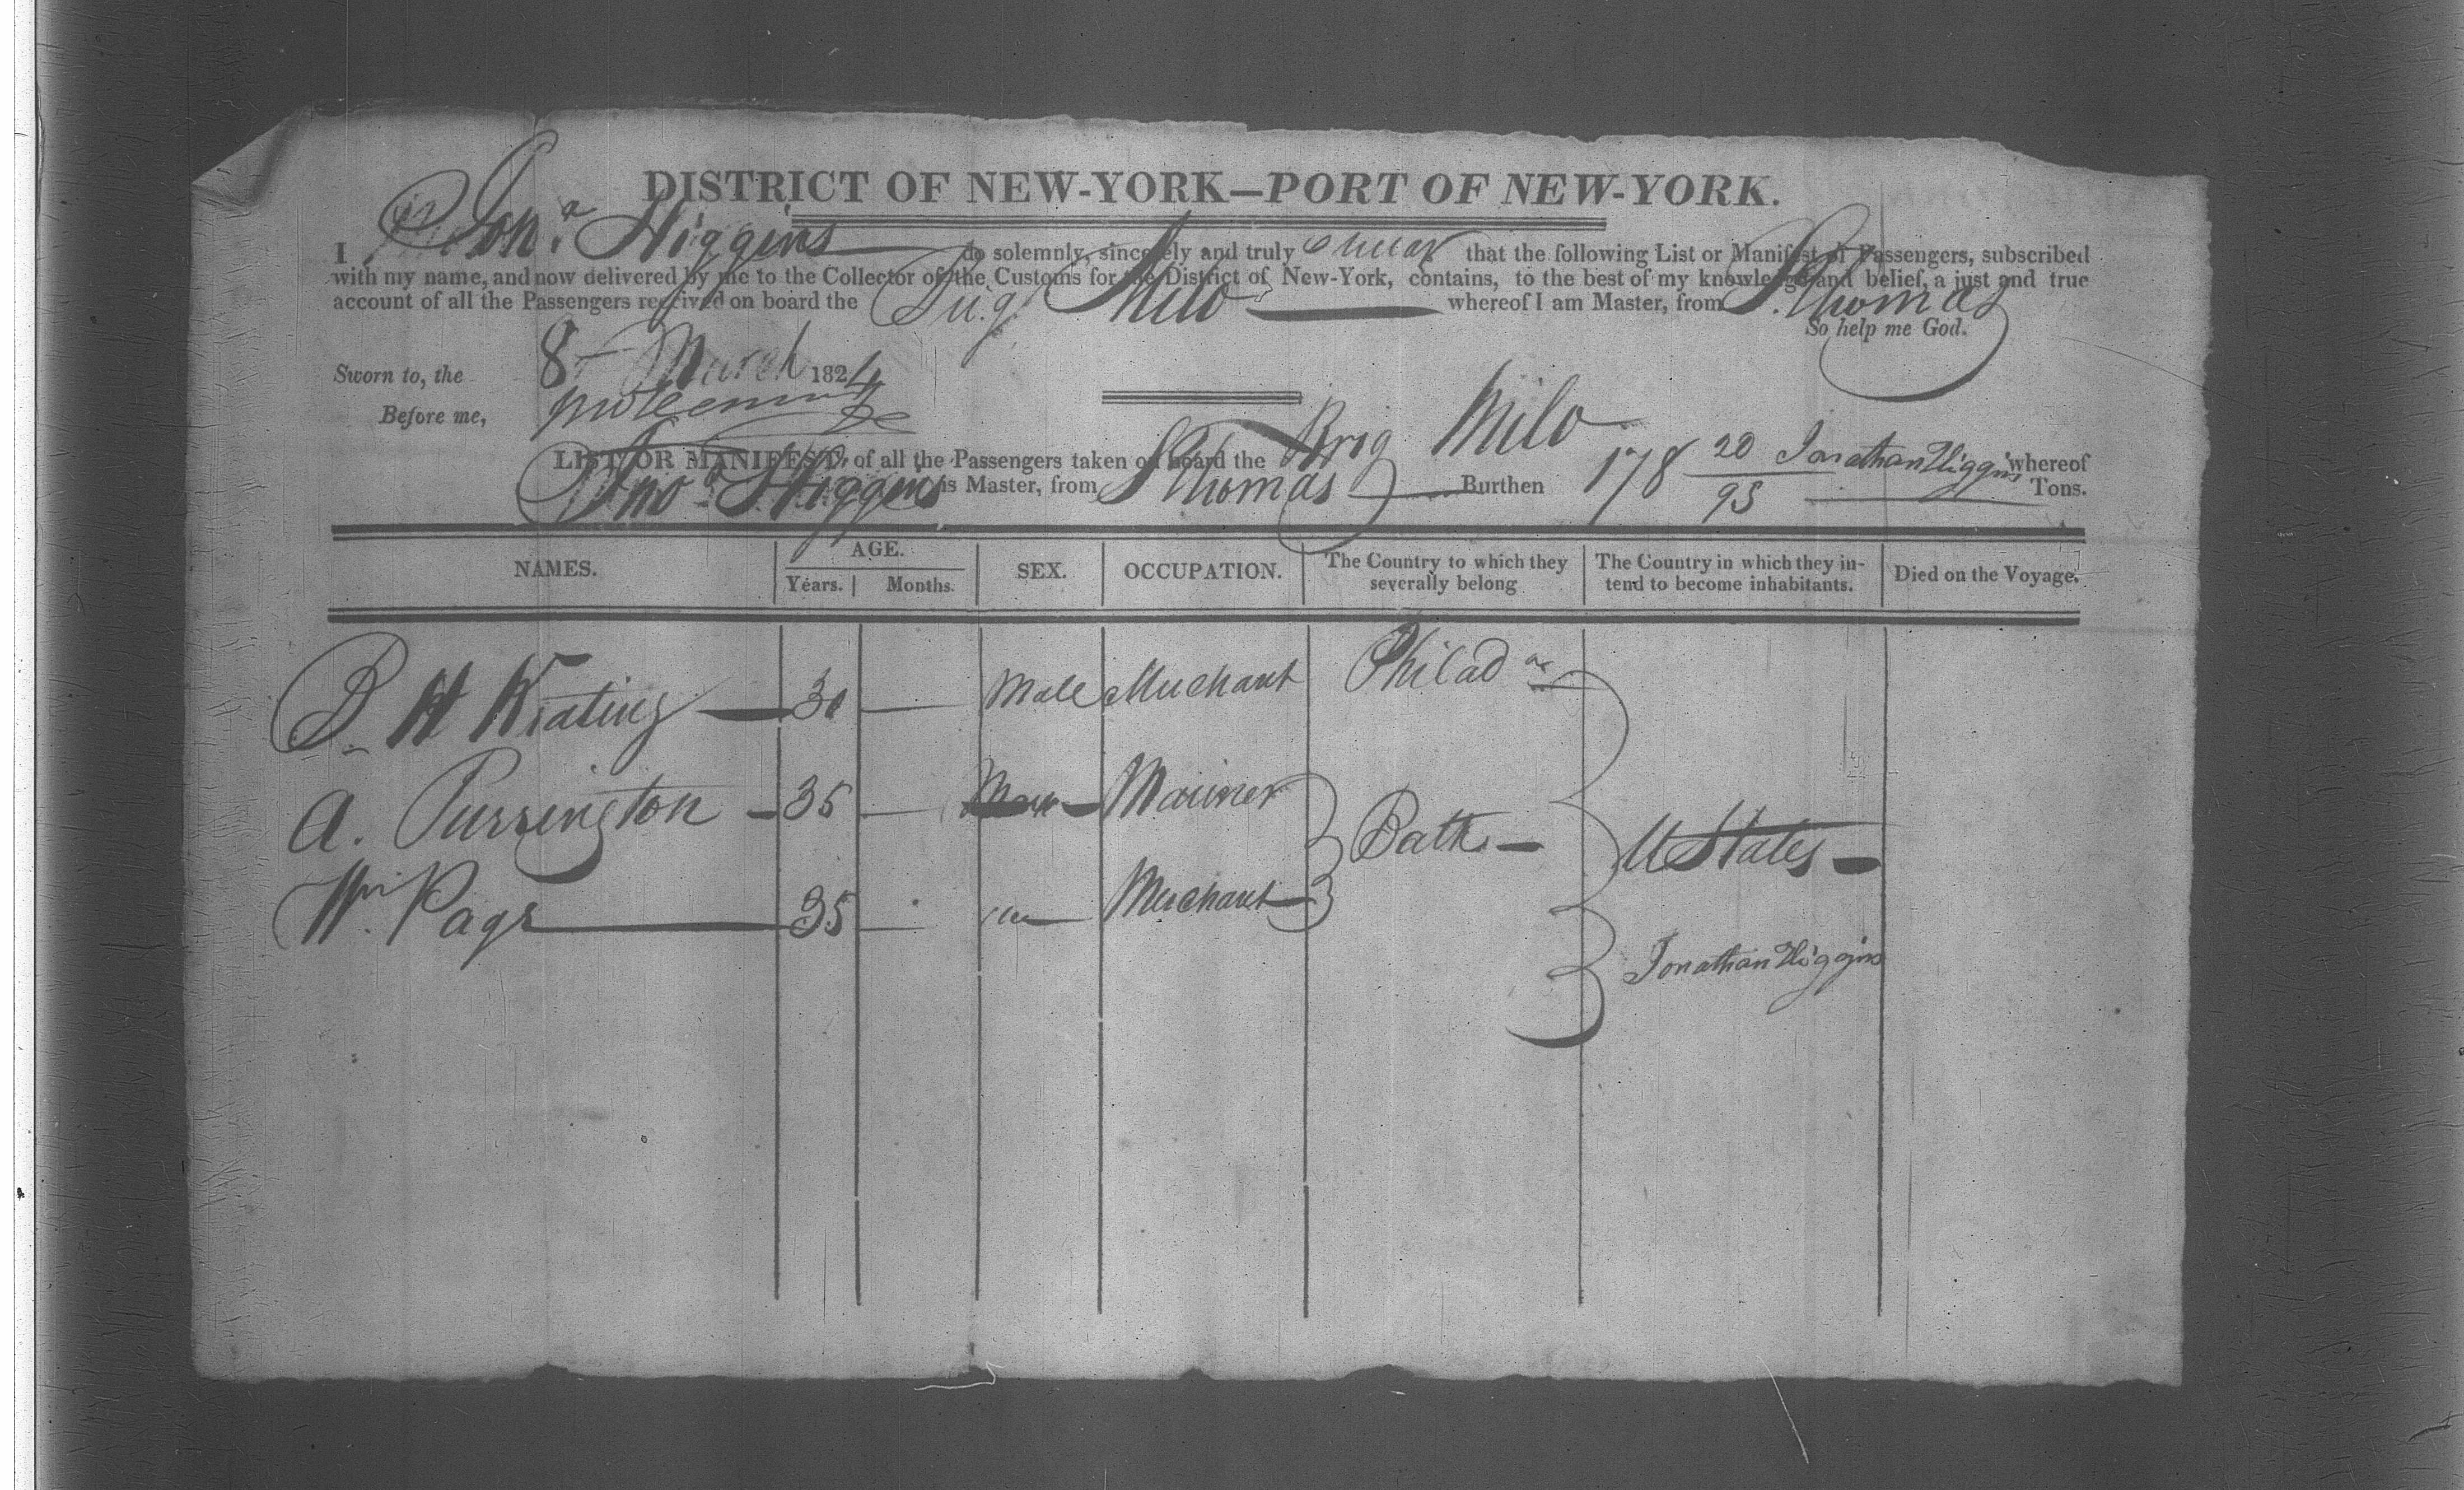 DISTRICT OF NEW-YORK—PORT OF NEW-YORK.
I, Jona Higgins do solemnly, sincerely and truly swear that the following List or Manifest of Passengers, subscribed
with my name, and now delivered by me to the Collector of the Customs for the District of New-York, contains, to the best of my knowledge and belief, a just and true
account of all the Passengers received on board the Brig Milo whereof I am Master, from St Thomas
So help me God.
Sworn to, the 8 March 1824
Before me,
LIST OR MANIFEST, of all the Passengers taken on board the Brig Milo whereof
Jona Higgins is Master, from St Thomas Burthen 178 20/95 Jonathan Higgins Tons.
NAMES. AGE. Years. Months. SEX. OCCUPATION. The Country to which they severally belong The Country in which they intend to become inhabitants. Died on the Voyage.
B H Keating 30 Male Merchant Philada
A. Purrington 35 Mariner
Bath U States
Wm Page 35 Merchant
Jonathan Higgins